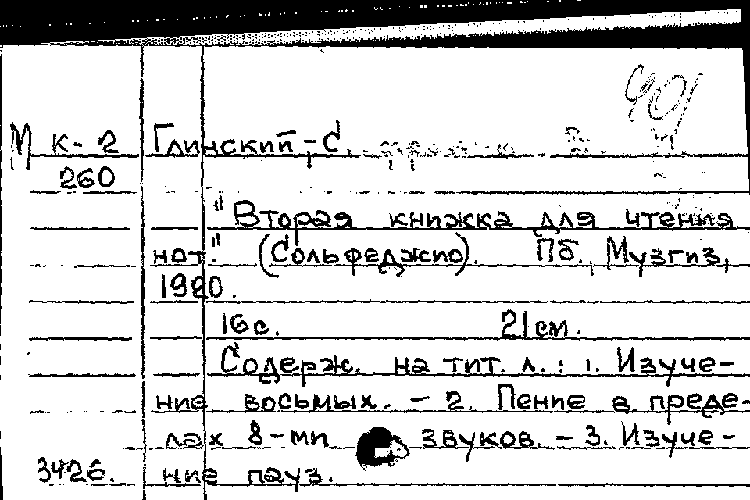 401
М К-2 Глинский, С.
260
"Вторая книжка для чтения
нот." (Сольфеджио). Пб., Музгиз,
1920.
16 с. 21 см.
Содерж. на тит. л.: 1. Изуче-
ние восьмых. - 2. Пение в преде-
лах 8-ми звуков. - 3. Изуче-
3426. ние пауз.